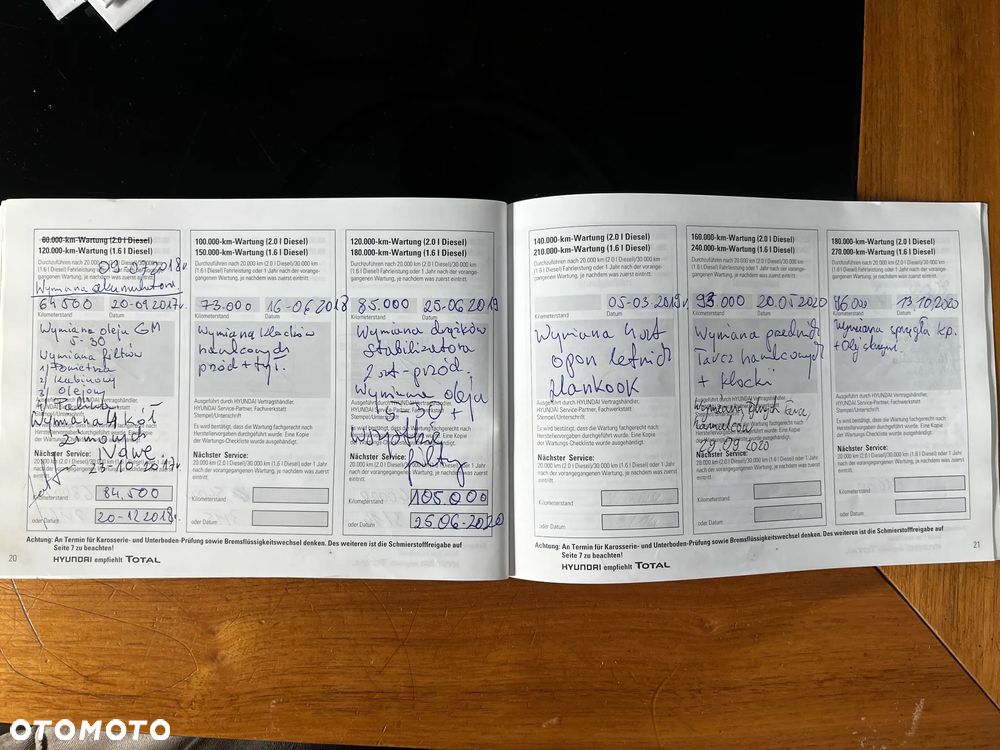 60.000-km-Wartung (2.0 l Diesel)
120.000-km-Wartung (1.6 l Diesel)
Durchzuführen nach 20.000 km (2.0 l Diesel)/30.000 km
(1.6 l Diesel) Fahrleistung oder 1 Jahr nach der vorange-
gangenen Wartung, je nachdem was zuerst eintritt.
03.09.2018r
Wymiana akumulatora
64 500 20-09-2017r
Kilometerstand Datum
Wymiana oleju GM
5-30
Wymiana filtrów
1) Powietrza
2) Kabinowy
3) Olejowy
4) Paliwa
Wymiana 4 kół
zimowych
Nowe
23-10-2017r
Nächster Service:
20.000 km (2.0 l Diesel)/30.000 km (1.6 l Diesel) oder 1 Jahr
nach der vorangegangenen Wartung, je nachdem was zuerst
eintritt.
Kilometerstand 84.500
oder Datum 20-12.2018r.
100.000-km-Wartung (2.0 l Diesel)
150.000-km-Wartung (1.6 l Diesel)
Durchzuführen nach 20.000 km (2.0 l Diesel)/30.000 km
(1.6 l Diesel) Fahrleistung oder 1 Jahr nach der vorange-
gangenen Wartung, je nachdem was zuerst eintritt.
73.000 16-06.2018
Kilometerstand Datum
Wymiana klocków
hamlcowych
przód + tył.
Ausgeführt durch HYUNDAI Vertragshändler,
HYUNDAI Service-Partner, Fachwerkstatt
Stempel/Unterschrift
Es wird bestätigt, dass die Wartung fachgerecht nach
Herstellervorgaben durchgeführt wurde. Eine Kopie
der Wartungs-Checkliste wurde ausgehändigt.
Nächster Service:
20.000 km (2.0 l Diesel)/30.000 km (1.6 l Diesel) oder 1 Jahr
nach der vorangegangenen Wartung, je nachdem was zuerst
eintritt.
Kilometerstand
oder Datum
120.000-km-Wartung (2.0 l Diesel)
180.000-km-Wartung (1.6 l Diesel)
Durchzuführen nach 20.000 km (2.0 l Diesel)/30.000 km
(1.6 l Diesel) Fahrleistung oder 1 Jahr nach der vorange-
gangenen Wartung, je nachdem was zuerst eintritt.
85.000 25-06.2019
Kilometerstand Datum
Wymiana drążków
stabilizatora
2 szt - przód.
Wymiana oleju
5-30 +
wszystkie
filtry
Nächster Service:
Kilometerstand 105.000
oder Datum 25.06-2020
Achtung: An Termin für Karosserie- und Unterboden-Prüfung sowie Bremsflüssigkeitswechsel denken. Des weiteren ist die Schmierstofffreigabe auf
Seite 7 zu beachten!
20
HYUNDAI empfiehlt TOTAL
140.000-km-Wartung (2.0 l Diesel)
210.000-km-Wartung (1.6 l Diesel)
Durchzuführen nach 20.000 km (2.0 l Diesel)/30.000 km
(1.6 l Diesel) Fahrleistung oder 1 Jahr nach der vorange-
gangenen Wartung, je nachdem was zuerst eintritt.
05-03.2019r
Kilometerstand Datum
Wymiana 4 szt
opon letnich
Hankook
Ausgeführt durch HYUNDAI Vertragshändler,
HYUNDAI Service-Partner, Fachwerkstatt
Stempel/Unterschrift
Es wird bestätigt, dass die Wartung fachgerecht nach
Herstellervorgaben durchgeführt wurde. Eine Kopie
der Wartungs-Checkliste wurde ausgehändigt.
Nächster Service:
20.000 km (2.0 l Diesel)/30.000 km (1.6 l Diesel) oder 1 Jahr
nach der vorangegangenen Wartung, je nachdem was zuerst
eintritt.
Kilometerstand
oder Datum
160.000-km-Wartung (2.0 l Diesel)
240.000-km-Wartung (1.6 l Diesel)
Durchzuführen nach 20.000 km (2.0 l Diesel)/30.000 km
(1.6 l Diesel) Fahrleistung oder 1 Jahr nach der vorange-
gangenen Wartung, je nachdem was zuerst eintritt.
93.000 20.05.2020
Kilometerstand Datum
Wymiana przednich
Tarcz hamulcowych
+ klocki
Wymiana
hamulców
29.09.2020
Nächster Service:
20.000 km (2.0 l Diesel)/30.000 km (1.6 l Diesel) oder 1 Jahr
nach der vorangegangenen Wartung, je nachdem was zuerst
eintritt.
Kilometerstand
oder Datum
180.000-km-Wartung (2.0 l Diesel)
270.000-km-Wartung (1.6 l Diesel)
Durchzuführen nach 20.000 km (2.0 l Diesel)/30.000 km
(1.6 l Diesel) Fahrleistung oder 1 Jahr nach der vorange-
gangenen Wartung, je nachdem was zuerst eintritt.
96.000 13.10.2020
Kilometerstand Datum
Wymiana sprzęgła kp.
+ Olej
Ausgeführt durch HYUNDAI Vertragshändler,
HYUNDAI Service-Partner, Fachwerkstatt
Stempel/Unterschrift
Es wird bestätigt, dass die Wartung fachgerecht nach
Herstellervorgaben durchgeführt wurde. Eine Kopie
der Wartungs-Checkliste wurde ausgehändigt.
Nächster Service:
20.000 km (2.0 l Diesel)/30.000 km (1.6 l Diesel) oder 1 Jahr
nach der vorangegangenen Wartung, je nachdem was zuerst
eintritt.
Kilometerstand
oder Datum
Achtung: An Termin für Karosserie- und Unterboden-Prüfung sowie Bremsflüssigkeitswechsel denken. Des weiteren ist die Schmierstofffreigabe auf
Seite 7 zu beachten!
21
HYUNDAI empfiehlt TOTAL
OTOMOTO